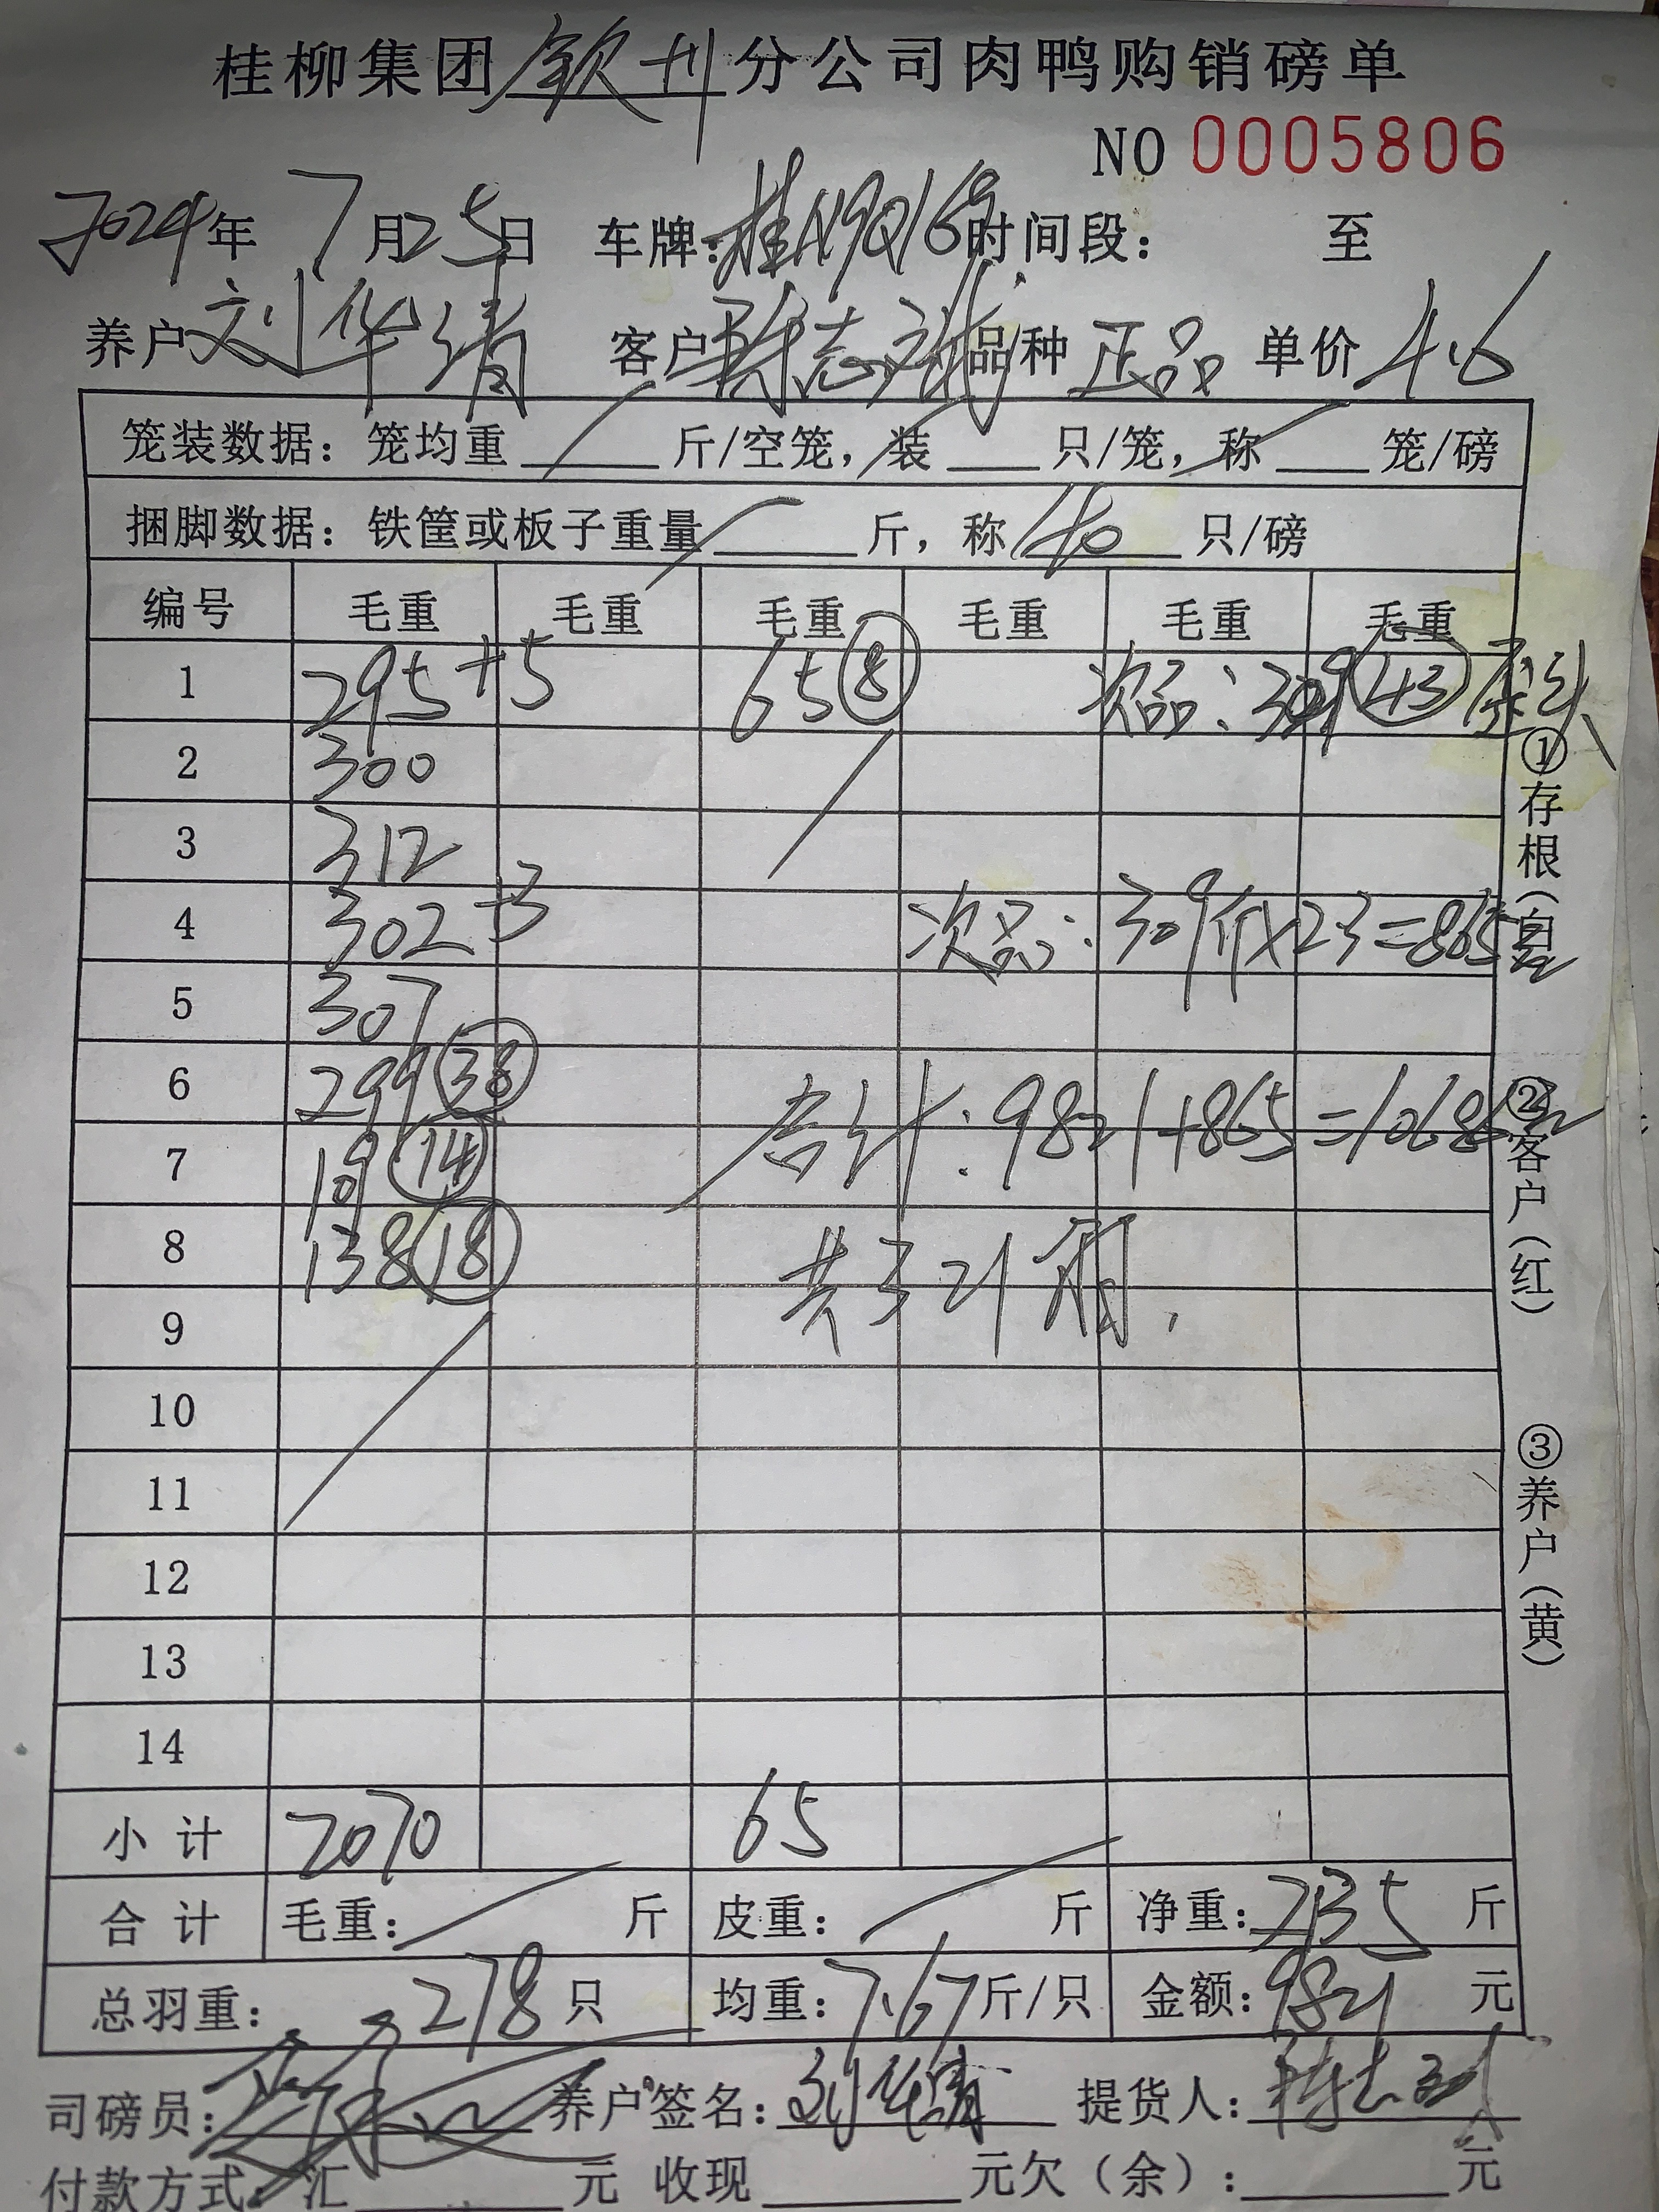 桂柳集团钦州分公司肉鸭购销磅单
NO 0005806
2024年7月25日 车牌:桂 时间段: 至
养户刘华清 客户 品种 正品 单价 4.6
笼装数据: 笼均重 斤/空笼, 装 只/笼, 称 笼/磅
捆脚数据: 铁筐或板子重量 斤, 称 40 只/磅
编号 毛重 毛重 毛重 毛重 毛重 毛重
1 295 +5 65 ⑧ 次品: 309 ㊸
2 300
3 312
4 302 +3 次品: 309斤×2 =865元
5 307
6 299 ㊳
7 109 ⑭ 合计: 9821+865=10686元
8 138 ⑱ 共321羽.
9
10
11
12
13
14
小计 2070 65
合计 毛重: 斤 皮重: 斤 净重: 2135 斤
总羽重: 278 只 均重: 7.67 斤/只 金额: 9821 元
司磅员: 养户签名: 刘华清 提货人:
付款方式: 汇 元 收现 元欠(余): 元
①存根(白)
②客户(红)
③养户(黄)